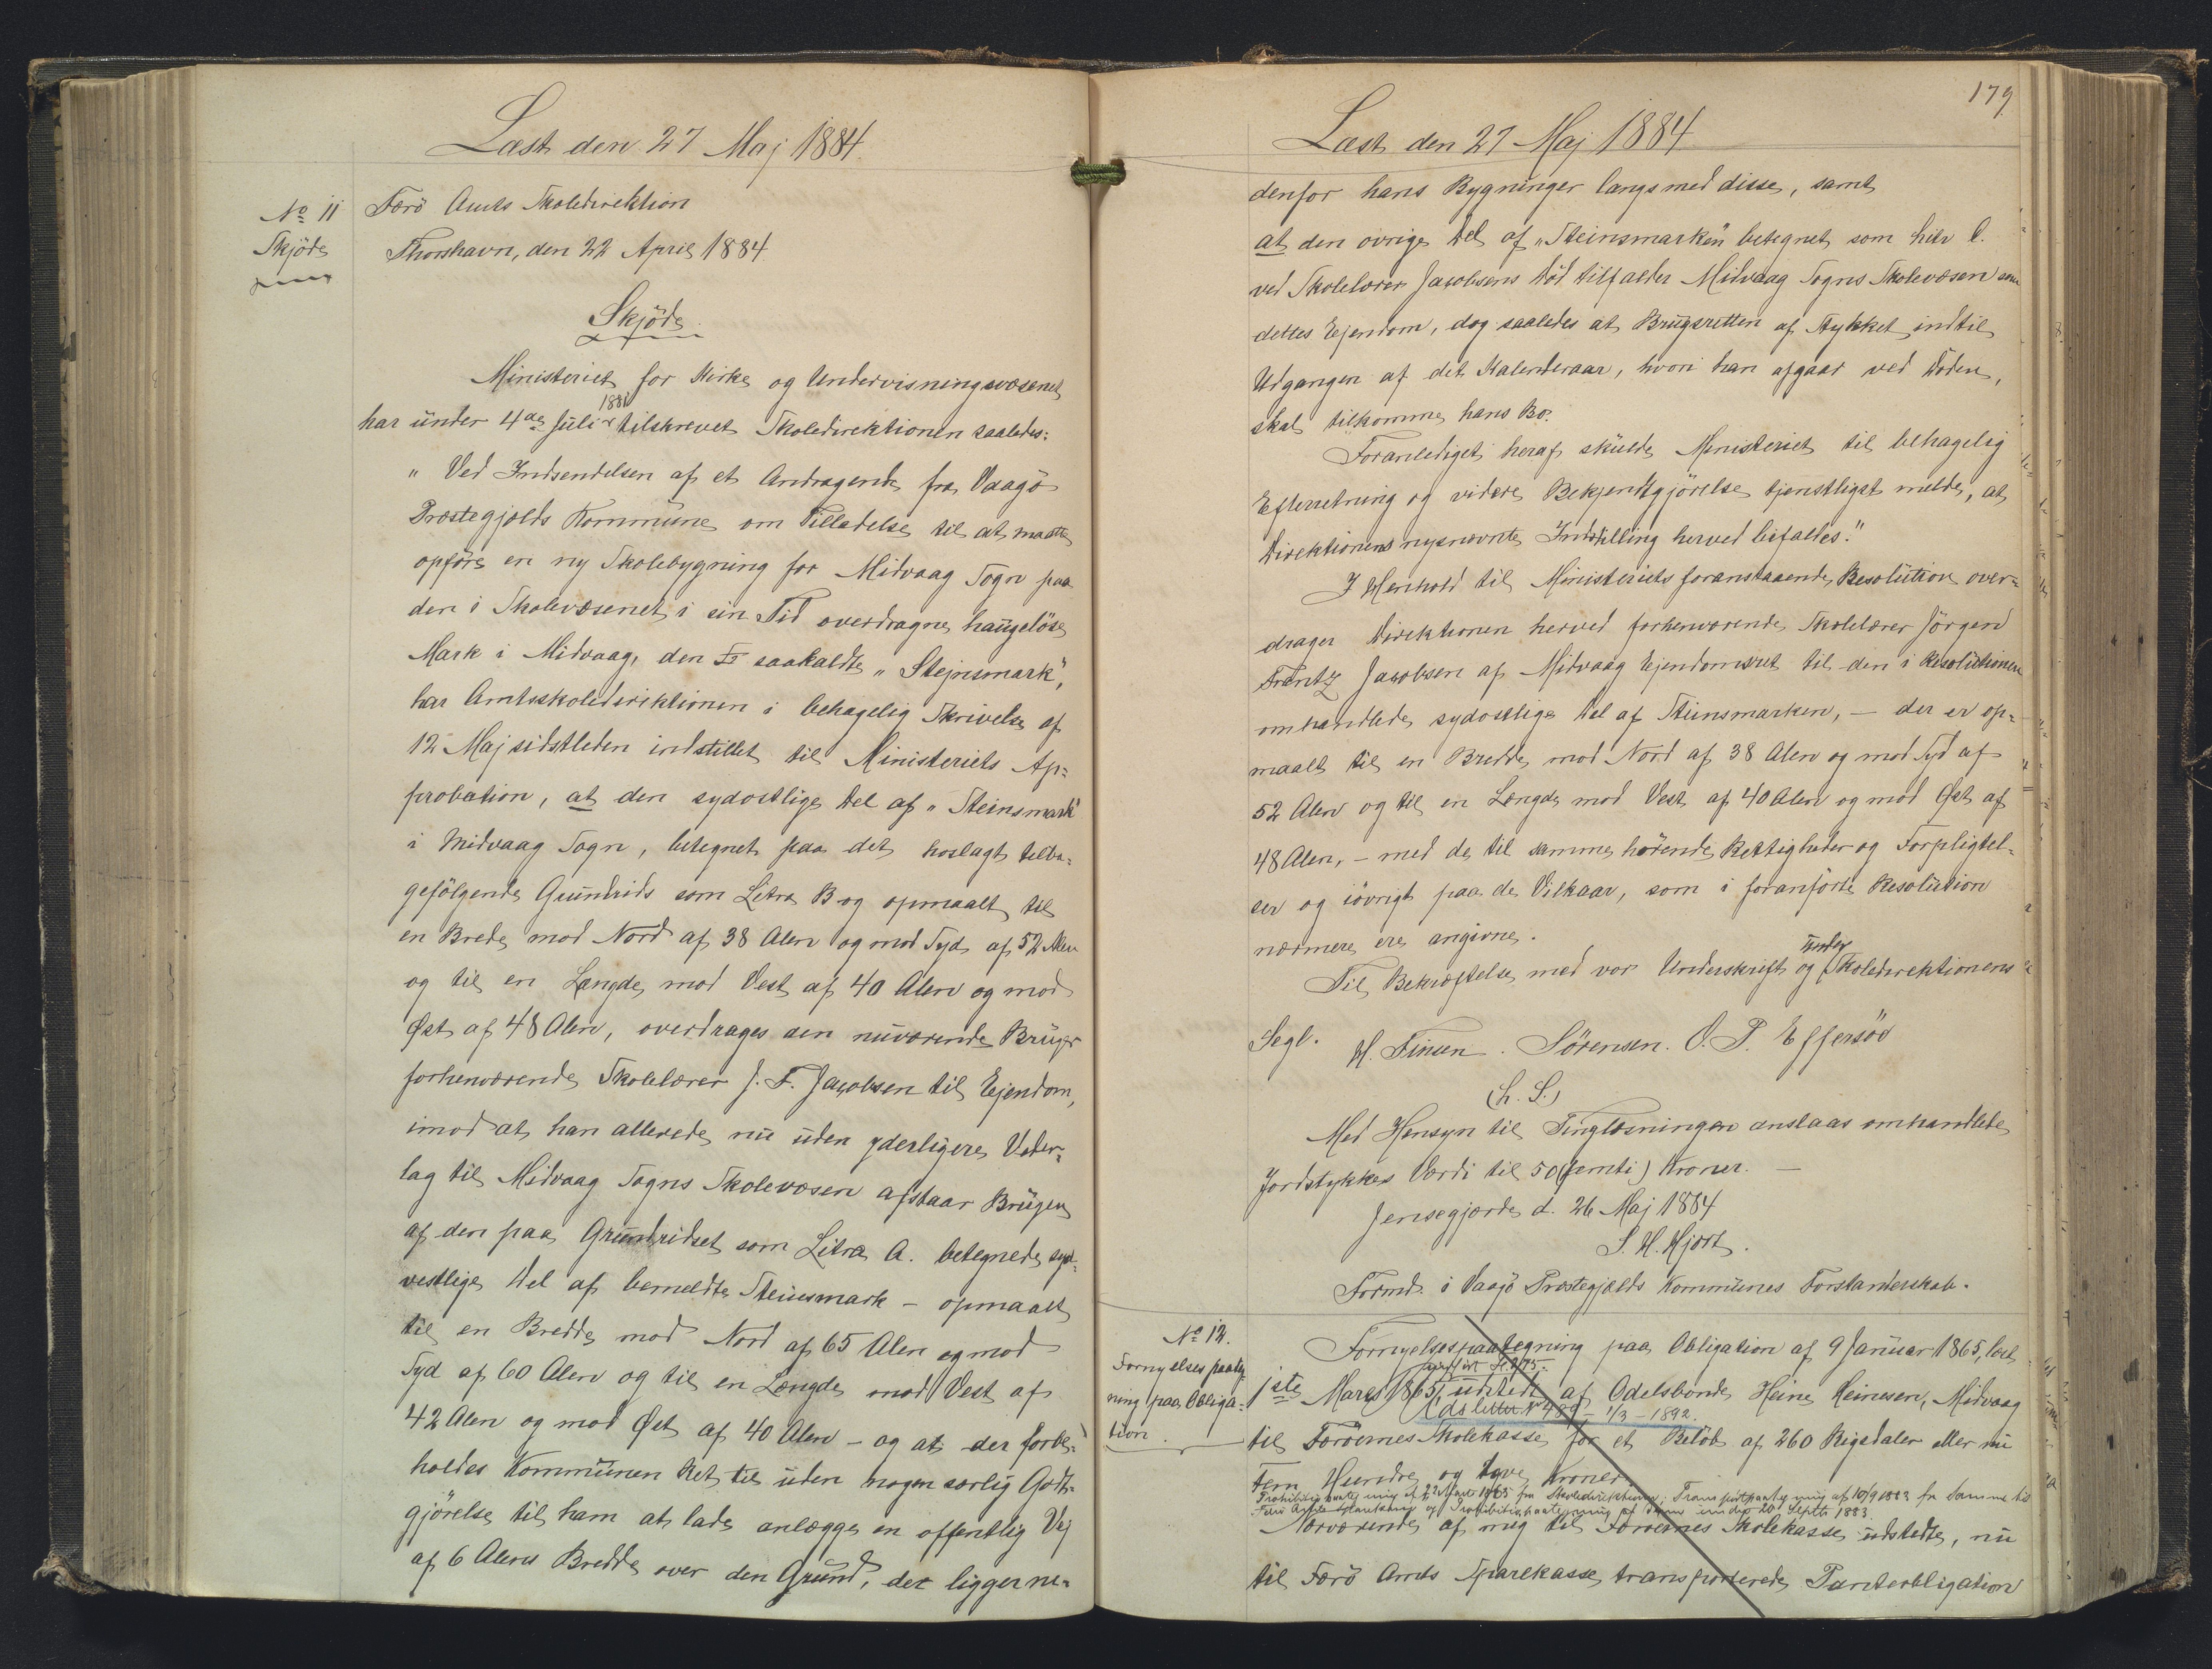 Læst den 27 Maj 1884.
No 11
Skjöde
Færö Amts Skoledirektion
Thorshavn, den 22 April 1884.
Skjöde
Ministeriet for Kirke og Undervisningsvæsenet
har under 4de Juli 1881 tilskrevet Skoledirektionen saaledes:
"Ved Indsendelsen af et Andragende fra Vaagö
Præstegjælds Kommune om Tilladelse til at maatte
opföre en ny Skolebygning for Midvaag Sogn paa
den i Skolevæsenet i sin Tid overdragne haugelöse
Mark i Midvaag, den saakaldte "Stejnsmark",
har Amtsskoledirektionen i behagelig Skrivelse af
12 Maj sidstleden indstillet til Ministeriets Ap-
probation, at den sydostlige Del af "Steinsmark"
i Midvaag Sogn, betegnet paa det hoslagt tilba-
gefölgende Grundrids som Litra B og opmaalt til
en Brede mod Nord af 38 Alen og mod Syd af 52 Alen
og til en Længde mod Vest af 40 Alen og mod
Øst af 48 Alen, overdrages den nuværende Bruger
forhenværende Skolelærer J. F. Jacobsen til Ejendom,
imod at han allerede nu uden yderligere Veder-
lag til Midvaag Sogns Skolevæsen afstaar Brugen
af den paa Grundridset som Litra A. betegnede syd-
vestlige Del af bemeldte Steinsmark - opmaalt
til en Bredde mod Nord af 65 Alen og mod
Syd af 60 Alen og til en Længde mod Vest af
42 Alen og mod Øst af 40 Alen - og at der forbe-
holdes Kommunen Ret til uden nogen særlig Godt-
gjörelse til ham at lade anlægge en offentlig Vej
af 6 Alens Bredde over den Grund, der ligger ne-
179
Læst den 27 Maj 1884
denfor hans Bygninger langs med disse, samt
at den övrige Del af "Steinsmarken" betegnet som Litr C.
ved Skolelærer Jacobsens Död tilfalder Midvaag Sogns Skolevæsen som
dettes Ejendom, dog saaledes at Brugsretten af Stykket indtil
Udgangen af det Kalenderaar, hvori han afgaar ved Döden,
skal tilkomme hans Bo.
Foranlediget heraf skulde Ministeriet til behagelig
Efterretning og videre Bekjendtgjörelse tjenstligst melde, at
Direktionens nysnævnte Indstilling herved bifaldes."
I Henhold til Ministeriets foranstaaende Resolution over-
drager Direktionen herved forhenværende Skolelærer Jörgen
Frantz Jacobsen af Midvaag Ejendomsret til den i Resolutionen
omhandlede sydostlige Del af Steinsmarken, — der er op-
maalt til en Bredde mod Nord af 38 Alen og mod Syd af
52 Alen og til en Længde mod Vest af 40 Alen og mod Øst af
48 Alen, - med de til samme hörende Rettigheder og Forpligtel-
ser og iövrigt paa de Vilkaar, som i foranförte Resolution
nærmere ere angivne.
Til Bekræftelse med vor Underskrift og under Skoledirektionens
Segl. H. Finsen. Sörensen. O. P. Effersöe
(L. S.)
Med Hensyn til Tinglæsningen anslaas omhandlede
Jordstykkes Værdi til 50 (femti) Kroner. —
Jensegjærde d. 26 Maj 1884
S. H. Hjort.
Formd. i Vaagö Præstegjælds Kommunes Forstanderskab.
No 12.
Fornyelsespaateg-
ning paa Obliga-
tion.
Fornyelsespaategning paa Obligation af 9 Januar 1865, læst
1ste Marts 1865, udstedt af Odelsbonde Heine Heinesen, Midvaag
Udslettet No 499 - 1/3 - 1892.
til Færöernes Skolekasse for et Belöb af 260 Rigsdaler eller nu
Fem Hundre og tyve Kroner.
Prohibitivpaategning af 22 Marts 1865 fra Skoledirektionen; Transportpaategning af 10/9 1883 fra Samme til
Færö Amts Sparekasse og Prohibitivpaategning af dem under 20 Septb 1883.
Nærværende af mig til Færöernes Skolekasse udstedte, nu
til Færö Amts Sparekasse transporterede Panteobligation